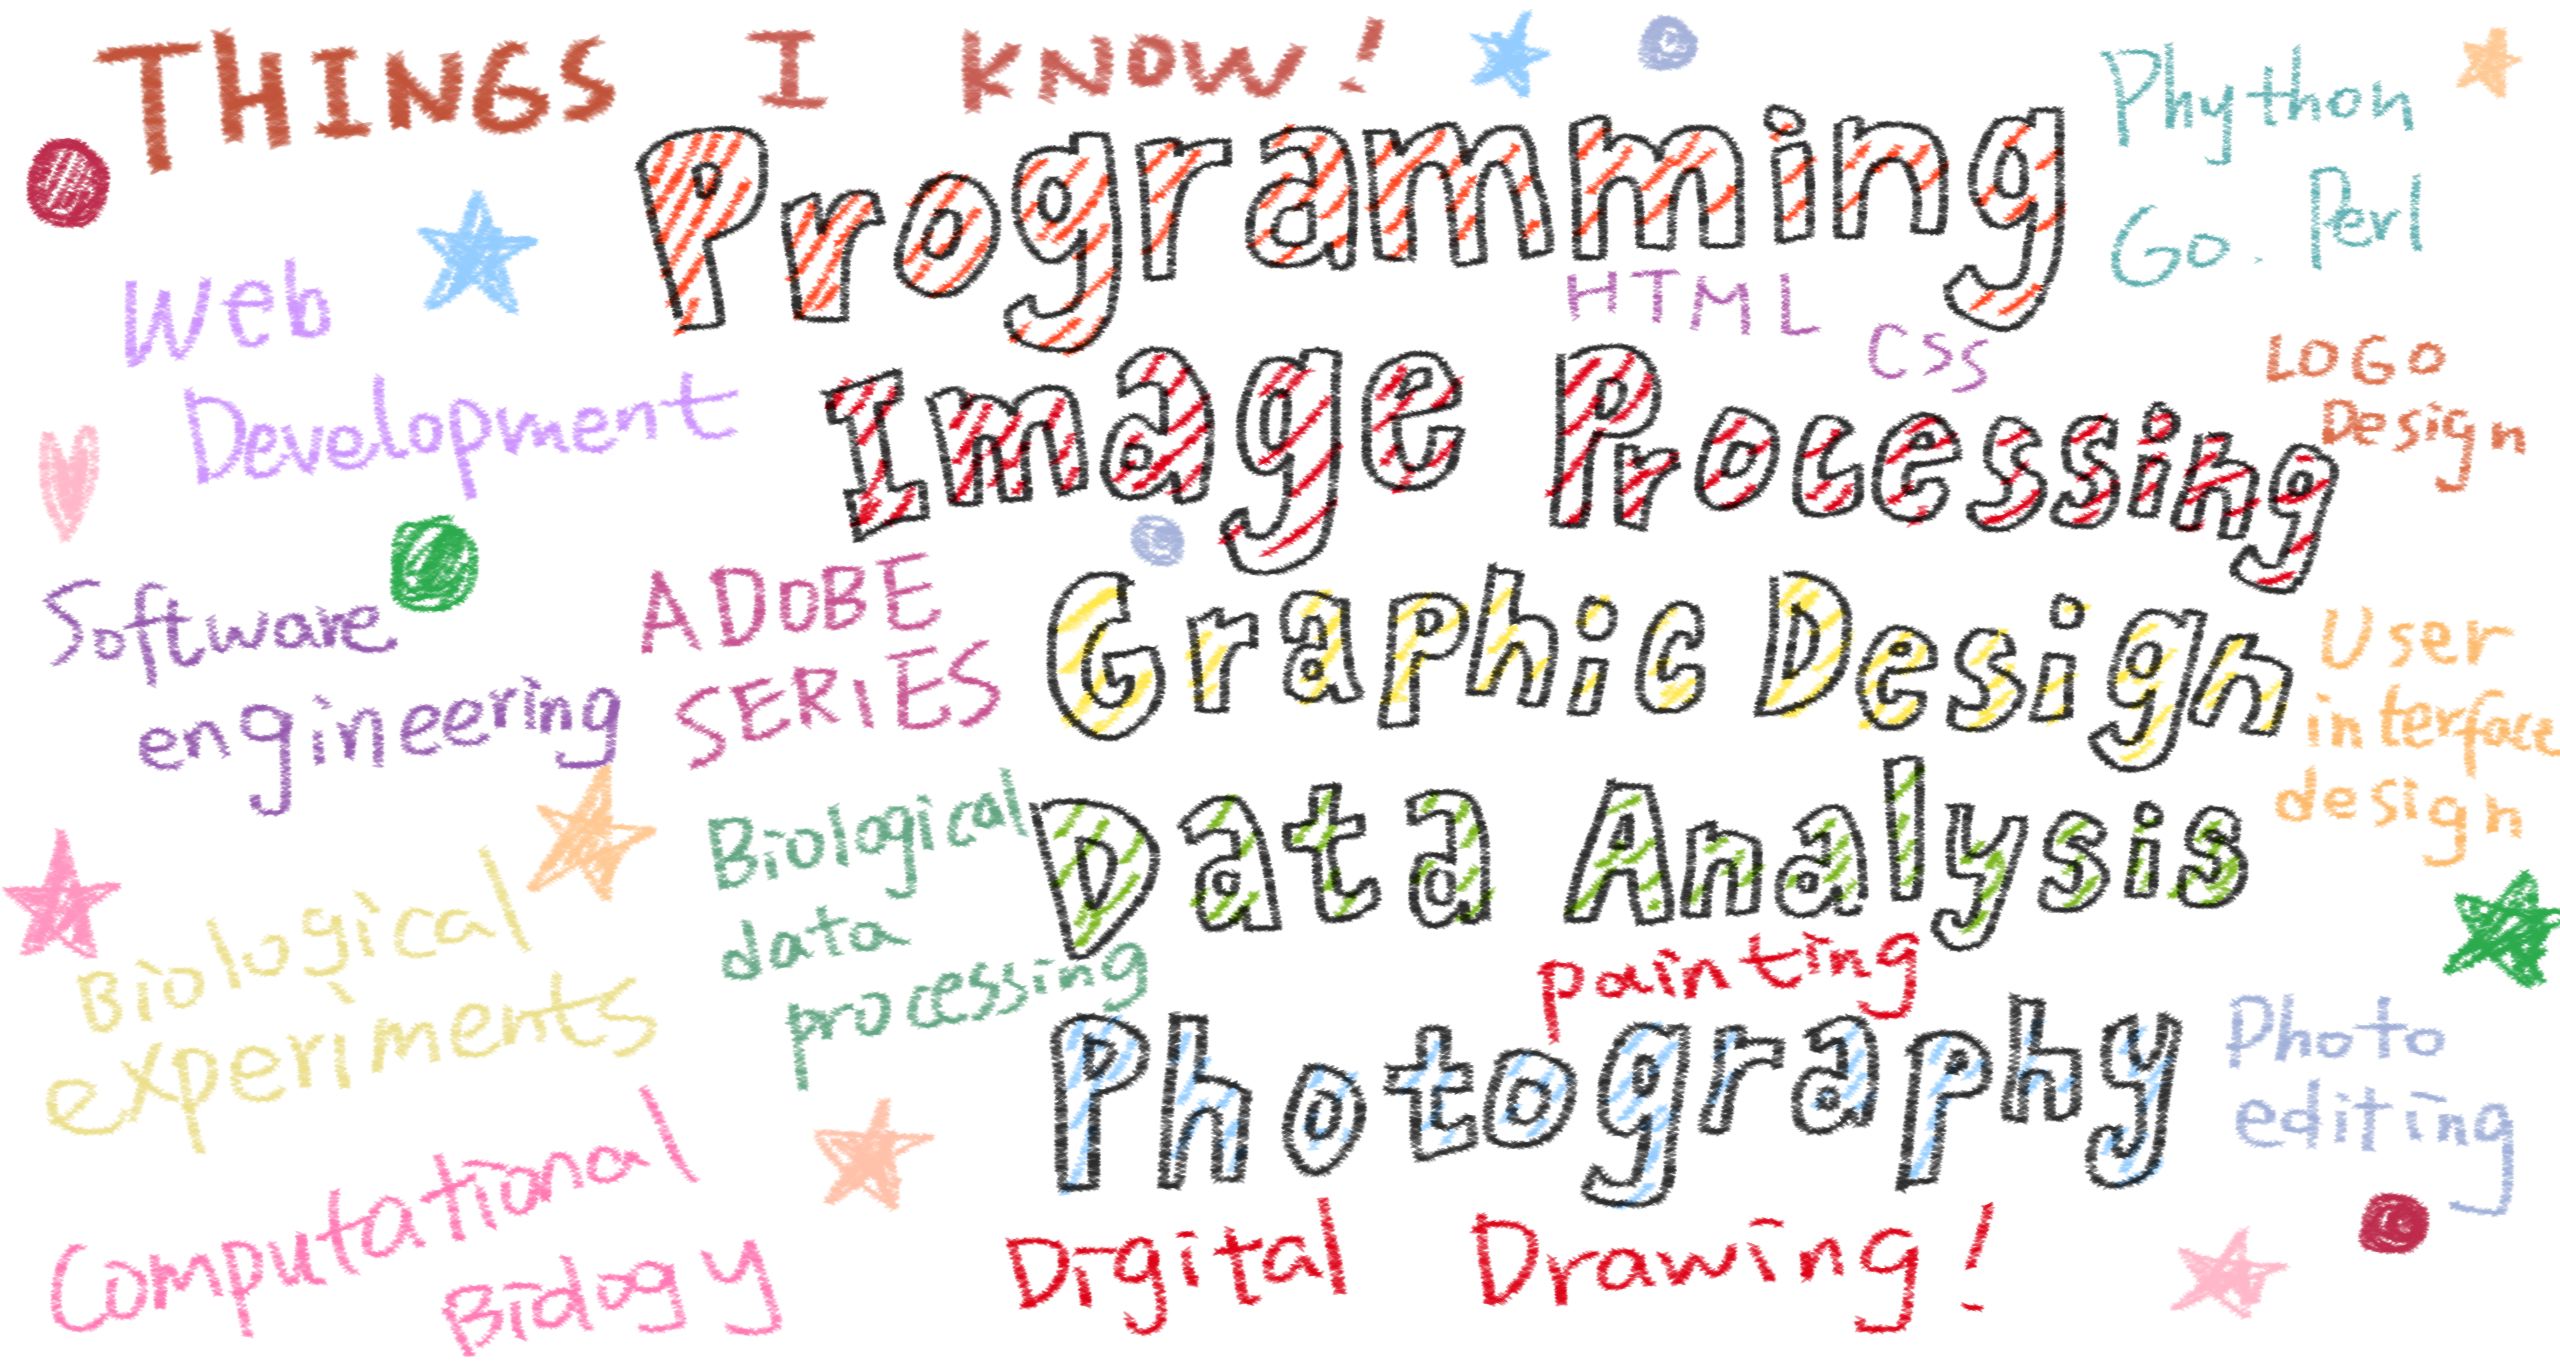 THINGS I KNOW!
Programming
Phython
Go. Perl
Web
Development
HTML CSS
Image Processing
LOGO
Design
Software
engineering
ADOBE
SERIES
Graphic Design
User
interface
design
Biological
experiments
Biological
data
processing
Data Analysis
painting
Photography
Photo
editing
Computational
Biology
Digital Drawing!